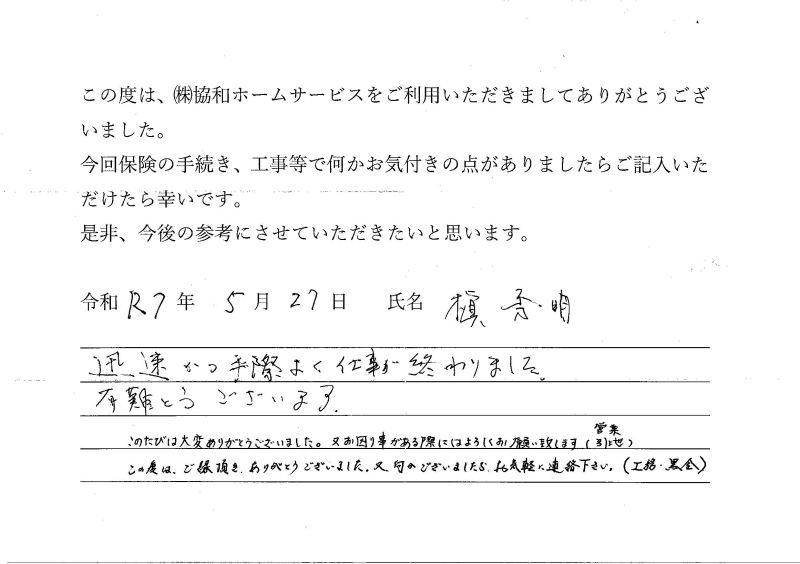 この度は、㈱協和ホームサービスをご利用いただきましてありがとうござ
いました。
今回保険の手続き、工事等で何かお気付きの点がありましたらご記入いた
だけたら幸いです。
是非、今後の参考にさせていただきたいと思います。
令和 R7 年 5 月 27 日 氏名 槇 秀明
迅速かつ手際よく仕事が終わりました。
有難とうございます。
営業
このたびは大変ありがとうございました。又お困り事がある際にはよろしくお願い致します
この度は、ご縁頂き、ありがとうございました。又何かございましたら、お気軽に連絡下さい。(工務・黒金)